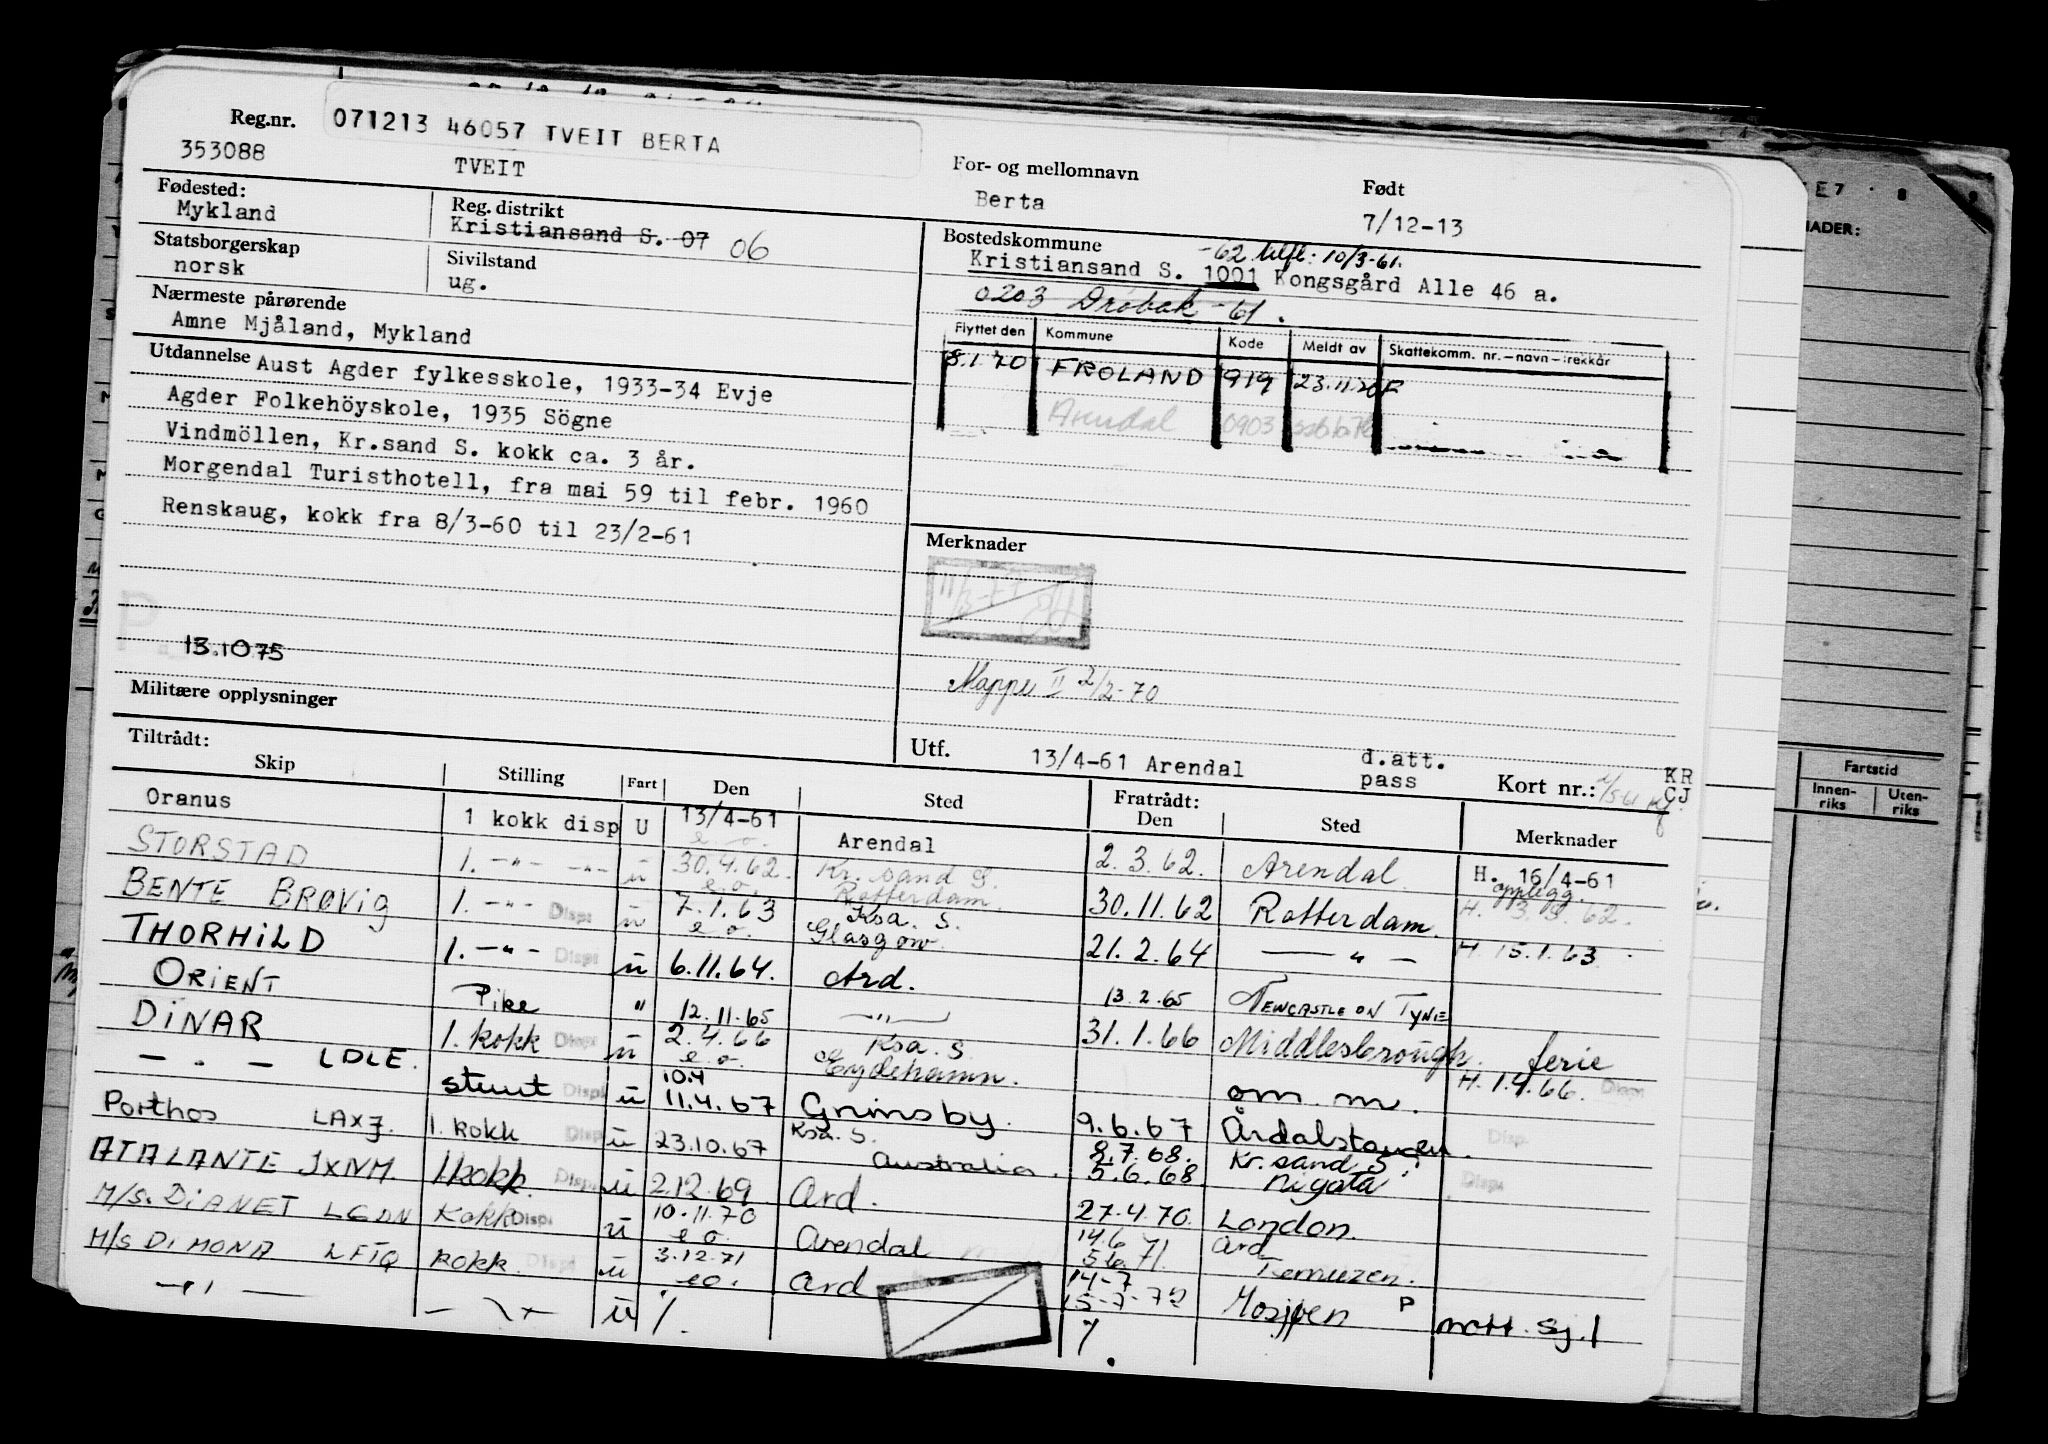 Reg.nr. 071213 46057 TVEIT BERTA
353088 TVEIT
For- og mellomnavn Født
Berta 7/12-13
Fødested:
Mykland
Reg. distrikt
Kristiansand S. 07 06
Statsborgerskap
norsk
Sivilstand
ug.
Nærmeste pårørende
Amne Mjåland, Mykland
Utdannelse Aust Agder fylkesskole, 1933-34 Evje
Agder Folkehöyskole, 1935 Sögne
Vindmöllen, Kr.sand S. kokk ca. 3 år.
Morgendal Turisthotell, fra mai 59 til febr. 1960
Renskaug, kokk fra 8/3-60 til 23/2-61
13.10 75
Militære opplysninger
Bostedskommune -62 tilfl: 10/3-61.
Kristiansand S. 1001 Kongsgård Alle 46 a.
0203 Drøbak -61.
Flyttet den Kommune Kode Meldt av Skattekomm. nr.–navn–trekkår
8.1.70 FROLAND 919 23.11.70 F
Arendal 0903
Merknader
Mappe II 2/2-70
Utf. 13/4-61 Arendal d.att. pass Kort nr.: KR CJ
Tiltrådt: Fratrådt:
Skip Stilling Fart Den Sted Den Sted Merknader
Oranus 1 kokk disp U 13/4-61 Arendal 2.3.62. Arendal H. 16/4-61
e.o. opplegg.
STORSTAD 1. -"- -"- u 30.4.62. Kr.sand S. 30.11.62 Rotterdam. H. 3.5.62.
e.o. Rotterdam.
BENTE BRØVIG 1. -"- Disp u 7.1.63 Ksa. S. 21.2.64 — " — H. 15.1.63
e.o. Glasgow.
THORHILD 1. -"- Disp u 6.11.64. Ard. 13.2.65 NEWCASTLE ON TYNE
ORIENT Pike " 12.11.65 —"— 31.1.66 Middlesbrough. ferie
DINAR 1. kokk Disp u 2.4.66 Ksa. S. H. 1.4.66. Disp
e.o. Eydehamn.
— . — LDLE. stuert Disp u 10.4 om. m.
11.4.67 Grimsby. 9.6.67 Årdalstangen.
Porthos LAXZ. 1. kokk Disp u 23.10.67 Ksa. S. 8.7.68. Kr.sand S.
Australia. 5.6.68 Nigata
ATALANTE JXNM. 1kokk. Disp u 2.12.69 Ard. 27.4.70. London.
M/S. DIANET LGDN Kokk Disp u 10.11.70 Arendal 14.6 71. Ard
e.o. Terneuzen.
M/S DIMONA LFIQ kokk. Disp u 3.12.71 Ard 14-7
eo. 15-7-72 Mosjøen P mott. sj.
u
Fartstid
Innenriks Utenriks